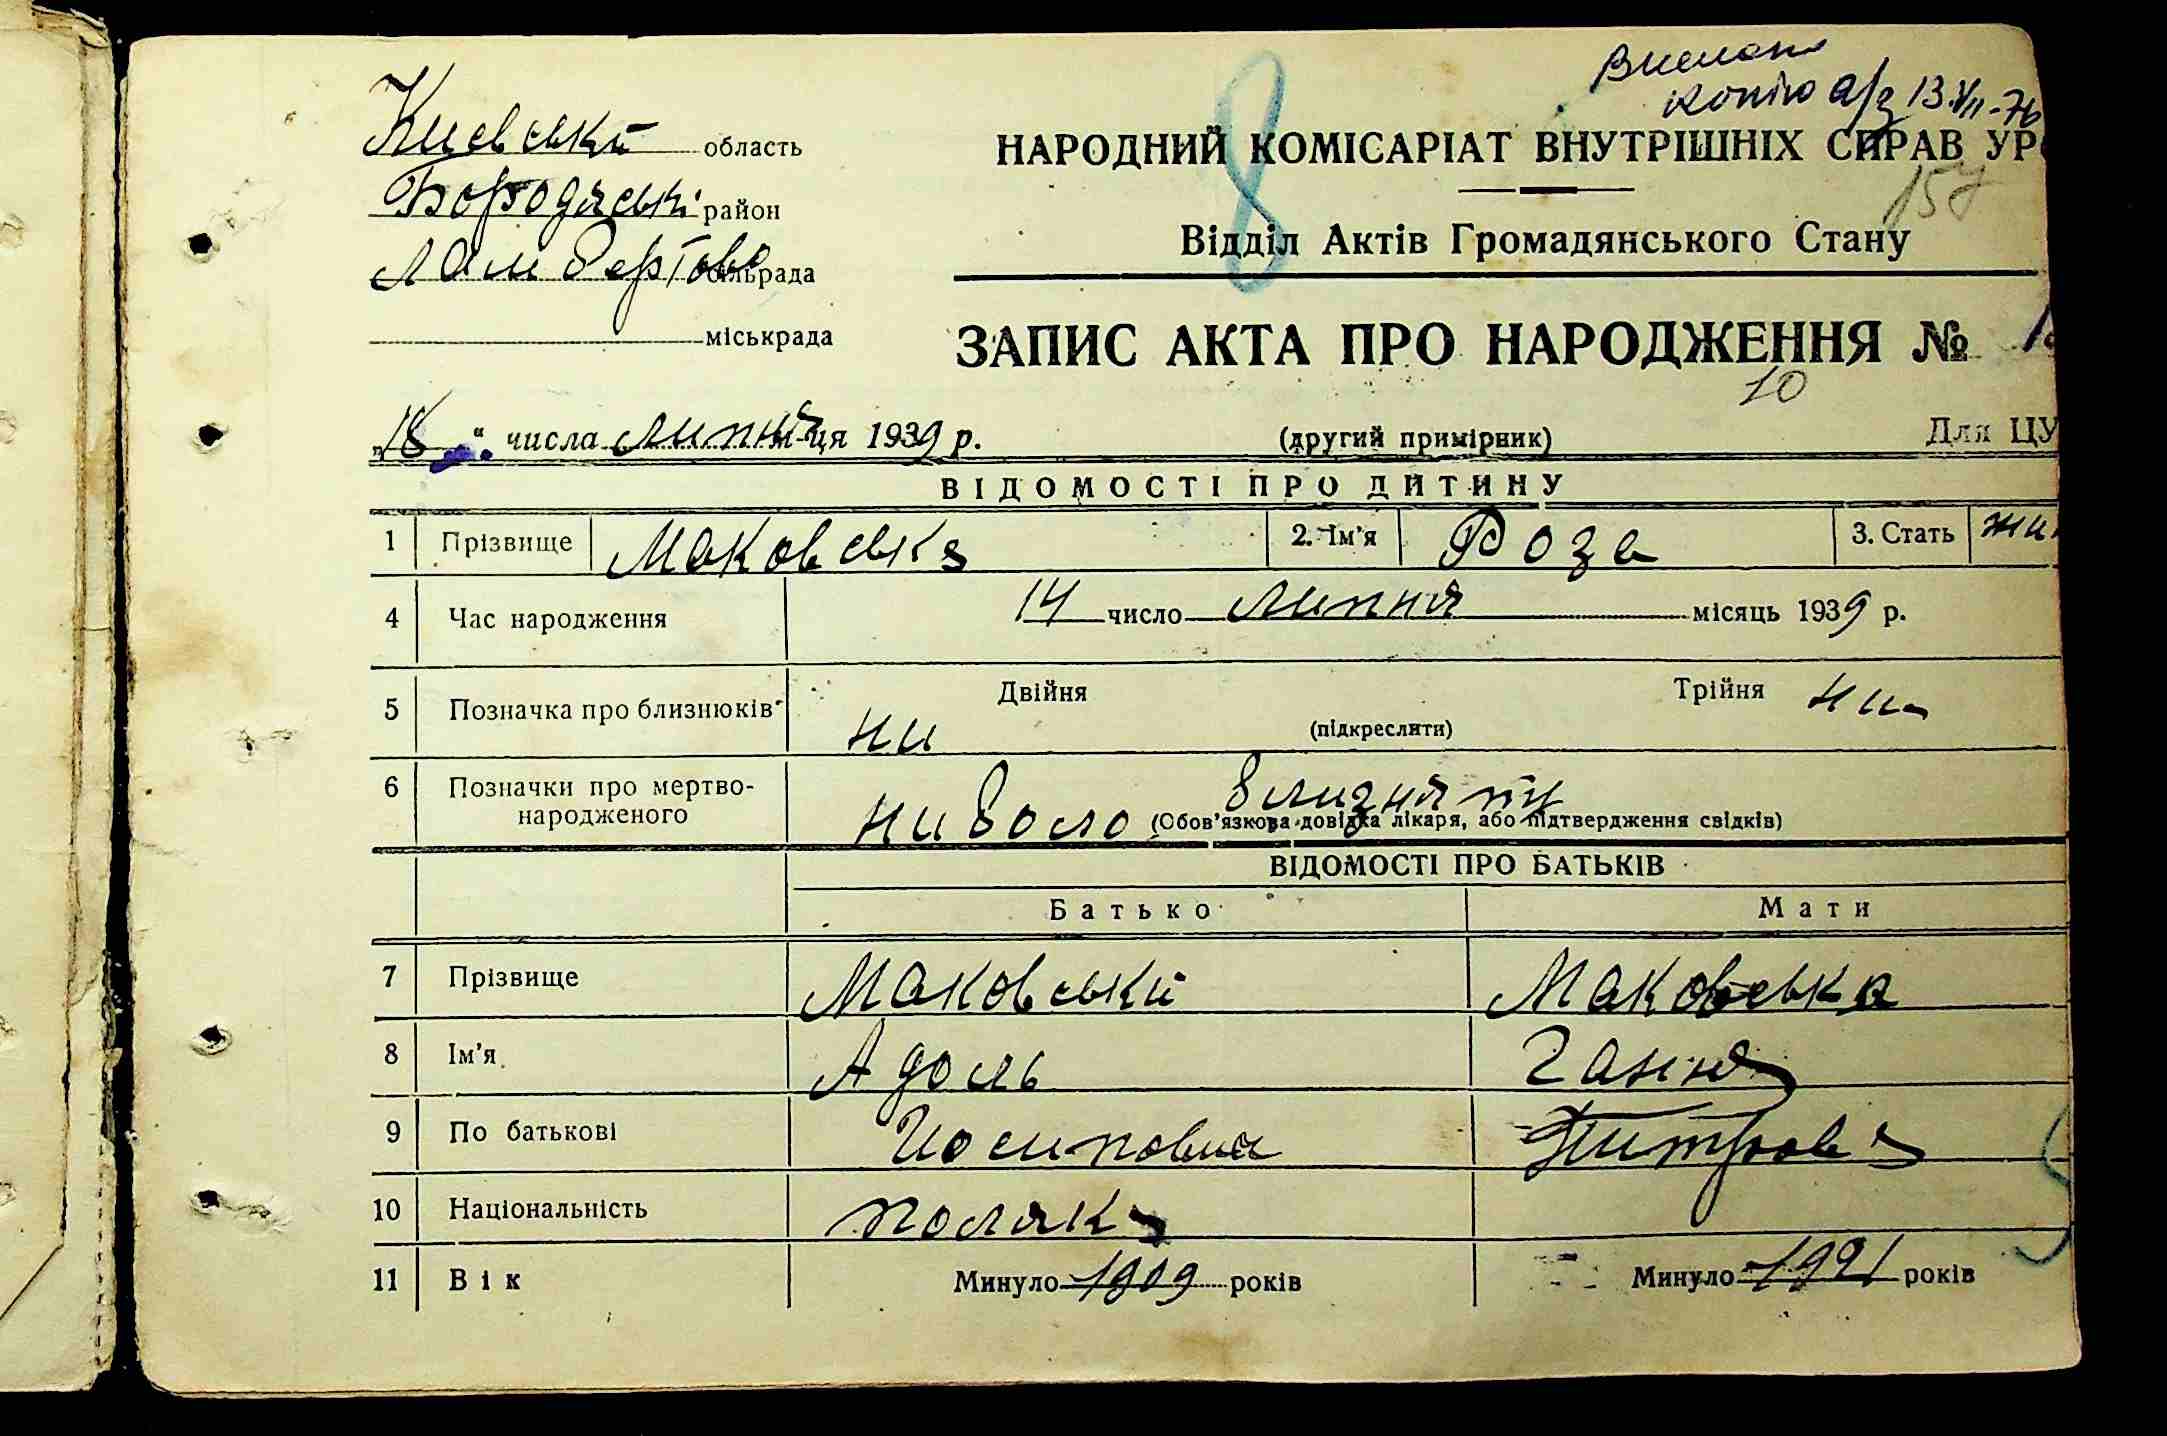 Вислано
копію а/з 13.VII-76
8
Київській область
НАРОДНИЙ КОМІСАРІАТ ВНУТРІШНІХ СПРАВ УР
157
Бородяські район
Відділ Актів Громадянського Стану
Ламбертово сільрада
міськрада
ЗАПИС АКТА ПРО НАРОДЖЕННЯ №
10
„18“ числа липня м-ця 1939 р.
(другий примірник)
Для ЦУ
ВІДОМОСТІ ПРО ДИТИНУ
1 Прізвище Маковська 2. Ім'я Роза 3. Стать жи
4 Час народження 14 число липня місяць 1939 р.
5 Позначка про близнюків Двійня ни (підкреслити) Трійня ни
6 Позначки про мертвонародженого ни боло близняту (Обов'язкова довідка лікаря, або підтвердження свідків)
ВІДОМОСТІ ПРО БАТЬКІВ
Батько Мати
7 Прізвище Маковський Маковська
8 Ім'я Адоль Ганна
9 По батькові Йосипович
10 Національність поляк
11 Вік Минуло 1909 років Минуло 1921 років